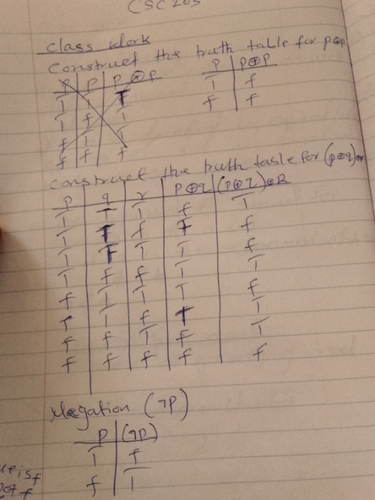 CSC203
Class Work
Construct the truth table for p⊕p
p | p | p ⊕ p
T | T | T
T | f | T
f | T | T
f | f | f
p | p⊕p
T | f
f | f
Construct the truth table for (p⊕q)⊕r
p | q | r | p⊕q | (p⊕q)⊕R
T | T | T | f | T
T | T | f | f
T | T | T | f
T | f | f | T | T
f | T | T | T | f
T | f | T | T
f | f | T | f | T
f | f | f | f | f
Negation (¬p)
p | (¬p)
T | f
f | T